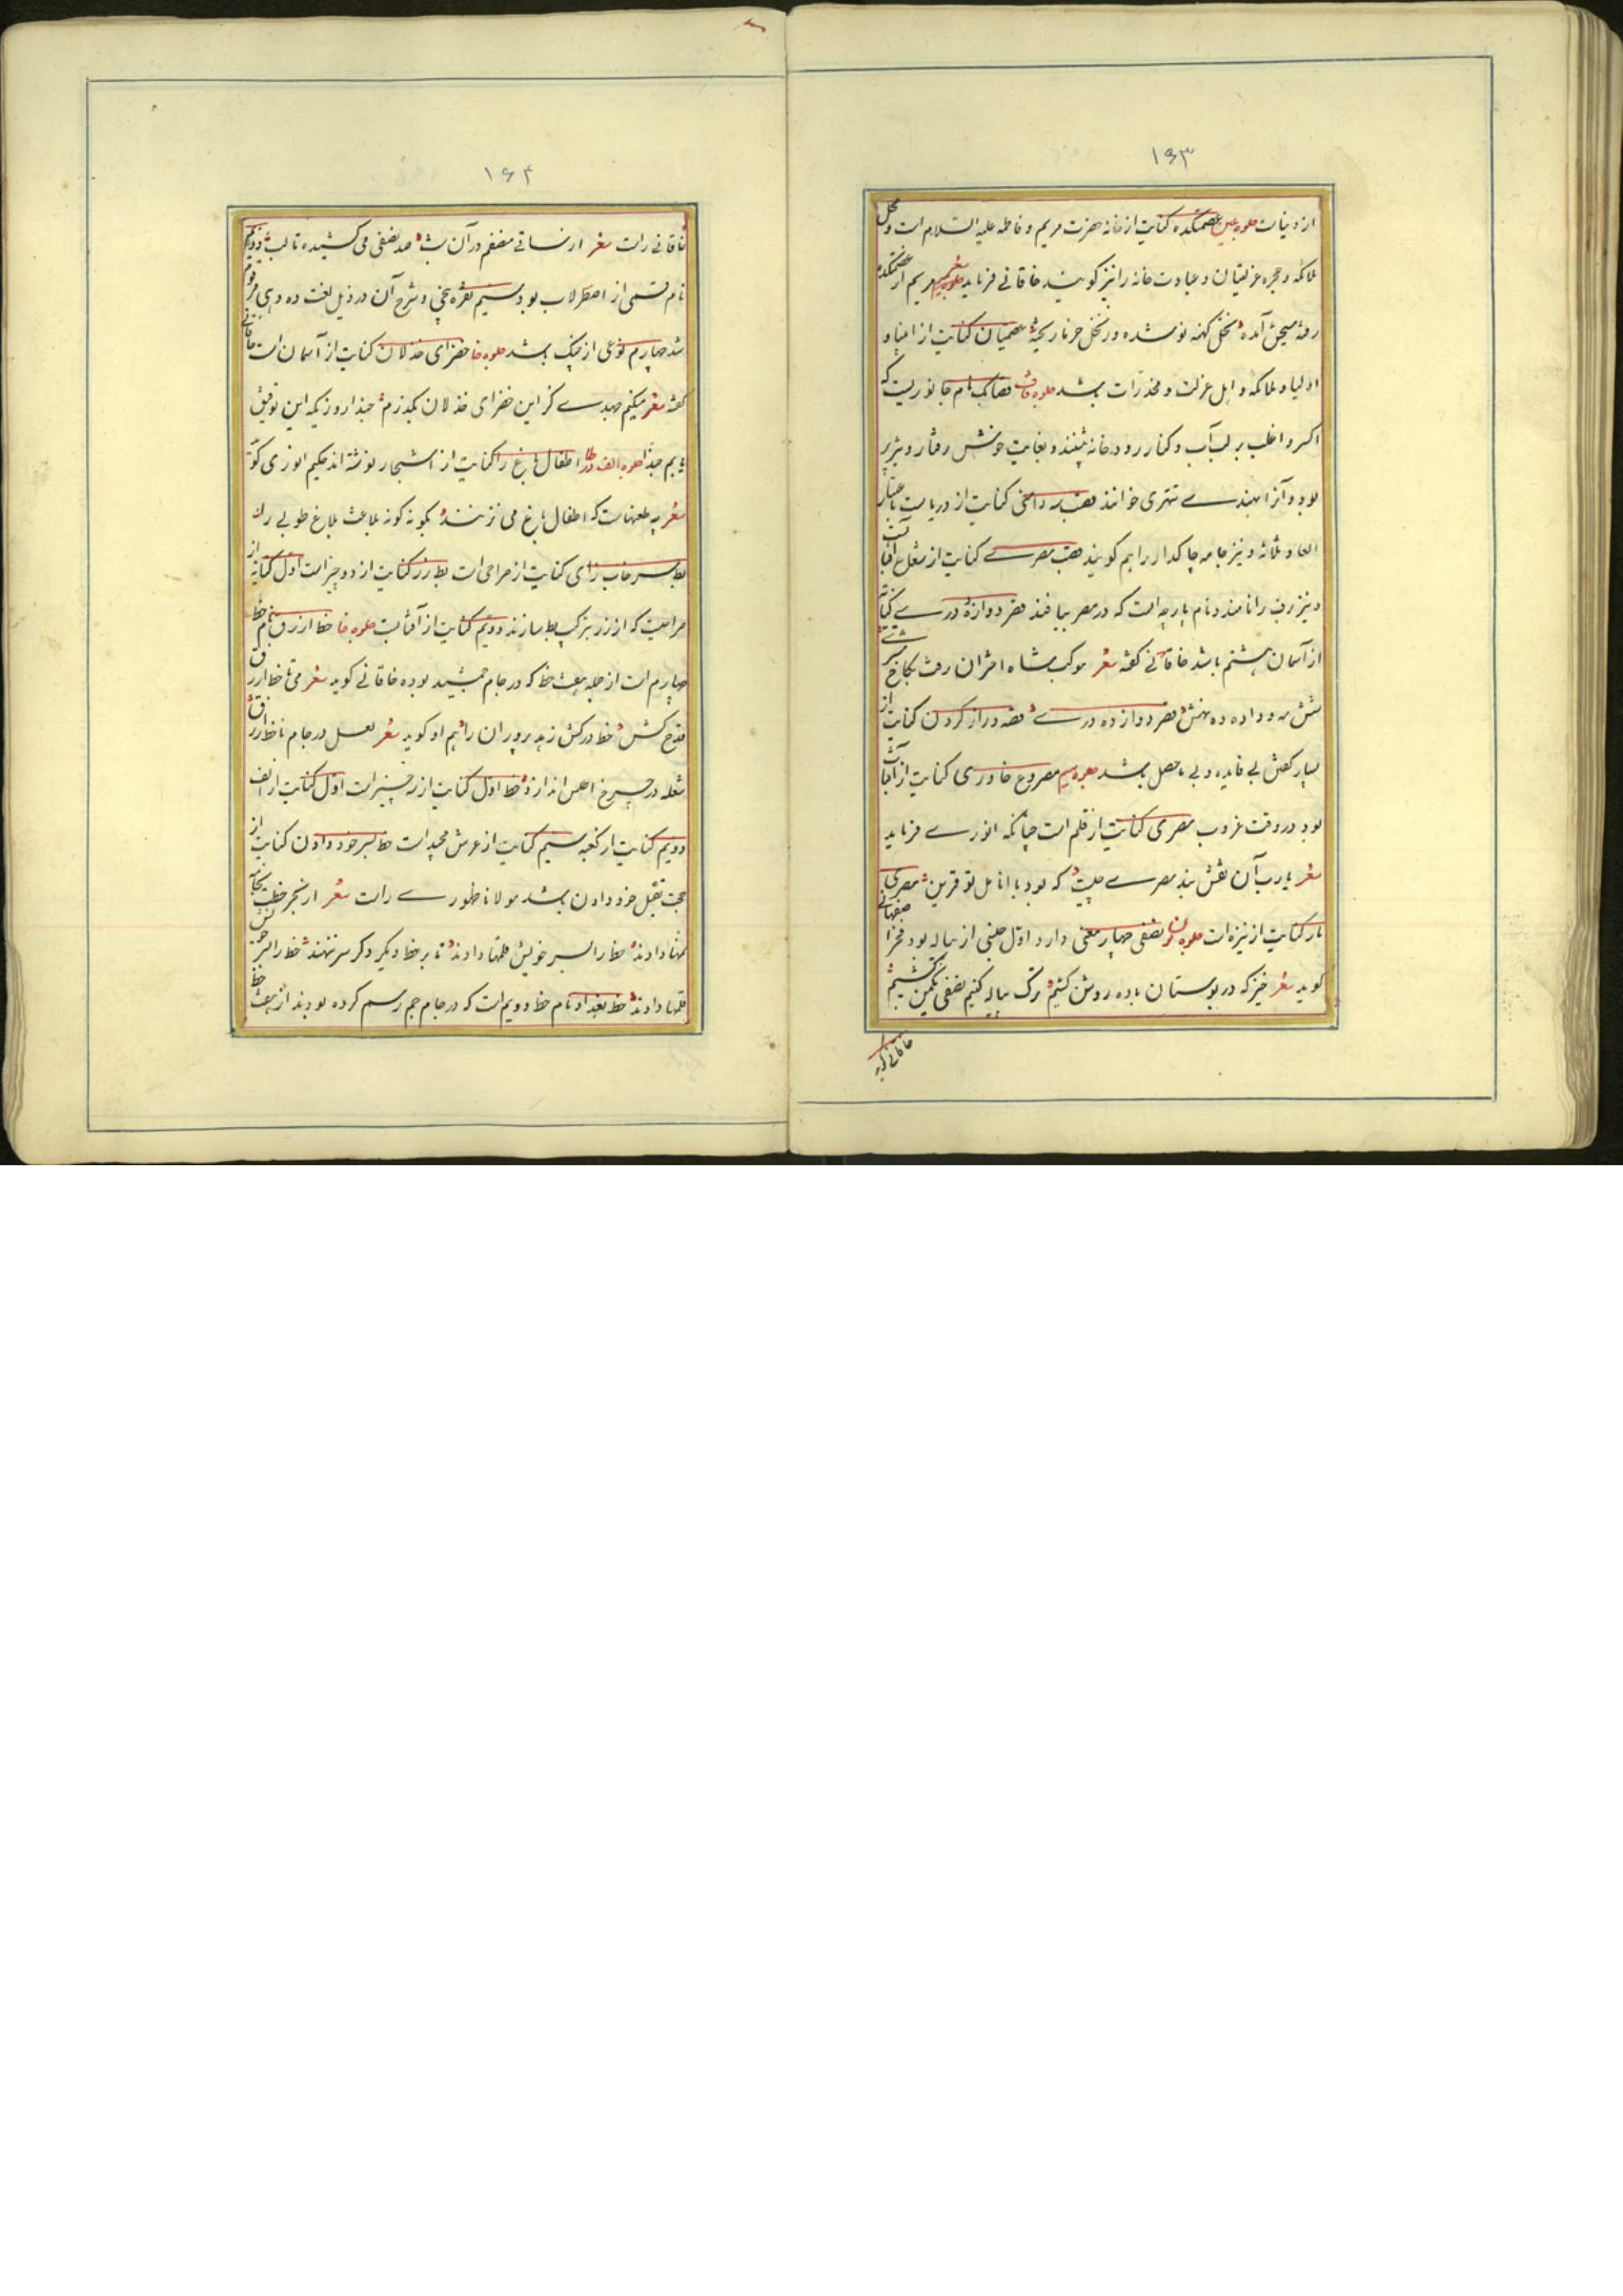 ۱۶۳
از دنیاست جلوه عین عصمتکده کنایت از خانه حضرت مریم و فاطمه علیه السلام است و محل
ملائکه و حجره عزلتیان و عبادت خانه را نیز گویند خاقانی فرماید مریم از عصمتکده
رفته مسیحش آمده نخل کهنه نو شده وز نخل خرما ریخته عصمتیان کنایت از انبیا و
اولیا و ملائکه و اهل عزلت و مخدرات باشد جلوه قاف نام جانوریست که
اکثر و اغلب بر لب آب و کنار رودخانه نشیند و بغایت خوش رفتار و
بود و آنرا بهندی خوانند قصب سه دامنی کنایت از دریاست باعتبار
ابعاد ثلاثه و نیز جامه چاکدار را هم گویند قصب مصری کنایت از شعاع آفتاب
و نیز برف را نامند و نام پارچه است که در مصر ببافند قصر دوازده دری کنایه
از آسمان هشتم باشد خاقانی گفته شعر موکب شاه اختران رفت بکاخ مشتری
شش مه داده ده نهش قصر دوازده دری قصه دراز کردن کنایت از
بسیار گفتن بی فایده و بی ماحصل باشد جلوه میم مصروع خاوری کنایت از آفتاب
بود در وقت غروب مصری کنایت از قلم است چنانکه انوری فرماید
شعر یارب آن نقش بند مصری چیست که بود با انامل تو قرین مصری
مار کنایت از نیزه است جلوه نون نصفی چهار معنی دارد اول جنسی از پیاله بود فخر اصفهانی
گوید شعر خیز که در بوستان باده روشن کشیم ترک پیاله کنیم نصفی کشیم
خاقانی گوید
۱۶۴
خاقانی راست شعر از در آن شد نصفی می کشیده تا لب دویم
نام قسمی از اصطرلاب بود سیم نقره و شرح آن در ذیل لغت ده دهی مرقوم
شد چهارم نوعی از چنگ باشد جلوه خا خضرای خذلان کنایت از آسمان است خاقانی
گفته شعر میکنم جهدی کز این خضرای خذلان بگذرم حبذا روزیکه این توفیق
یابم حبذا جلوه الف در طا اطفال باغ را کنایت از اشجار نوشته اند حکیم انوری گوید
شعر چه طعنهاست که اطفال باغ می نزنند بگونه گونه بلاغت بلاغ طوبی را
بط سرخاب زای کنایت از صراحی است بط زر کنایت از دو چیز است اول کنایه از
صراحیست که از زر بترکیب بط سازند دویم کنایت از آفتابست جلوه خا خط ازرق نام خط
چهارم است از جمله هفت خط که در جام جمشید بوده خاقانی گوید شعر می تا خط ازرق
قدح کش خط درکش زهد پروران را هم او گوید شعر لعل در جام تا خط ازرق
شعله در چرخ اطلس اندازد خط اول کنایت از سه چیز است اول کنایت از الف
دویم کنایت از کعبه سیم کنایت از عرش مجید است خط بسر خود دادن کنایت از
حجت بقتل خود دادن باشد مولانا ظهوری راست شعر
خط را بسر خویش قلمها دادند تا بر خط دیگر و گر سر ننهند خط را بسر خویش
قلمها دادند خط بغداد نام خط دویم است که در جام جم رسم کرده بودند از هفت خط